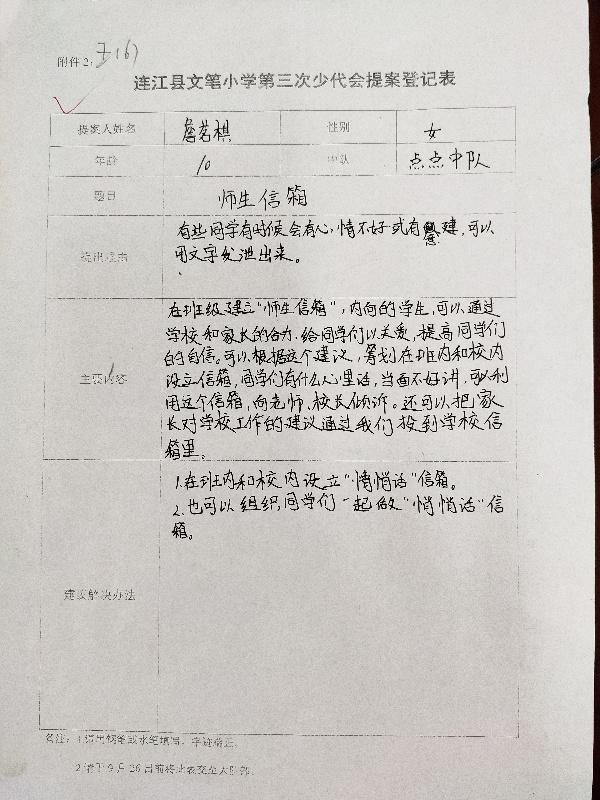 附件2:
连江县文笔小学第三次少代会提案登记表
提案人姓名 詹茗棋 性别 女
年龄 10 中队 点点中队
题目 师生信箱
有些同学有时候会有心情不好或有意建,可以
提出理由
用文字发泄出来。
在班级建立“师生信箱”,内向的学生,可以通过
学校和家长的合力,给同学们以关爱,提高同学们
的自信。可以根据这个建议,筹划在班内和校内
主要内容
设立信箱,同学们有什么心里话,当面不好讲,可以利
用这个信箱,向老师、校长倾诉。还可以把家
长对学校工作的建议通过我们投到学校信
箱里。
1.在班内和校内设立“悄悄话”信箱。
2.也可以组织同学们一起做“悄悄话”信
箱。
建议解决办法
备注:1.请用钢笔或水笔填写,字迹端正。
2.请于9月26日前将此表交至大队部。